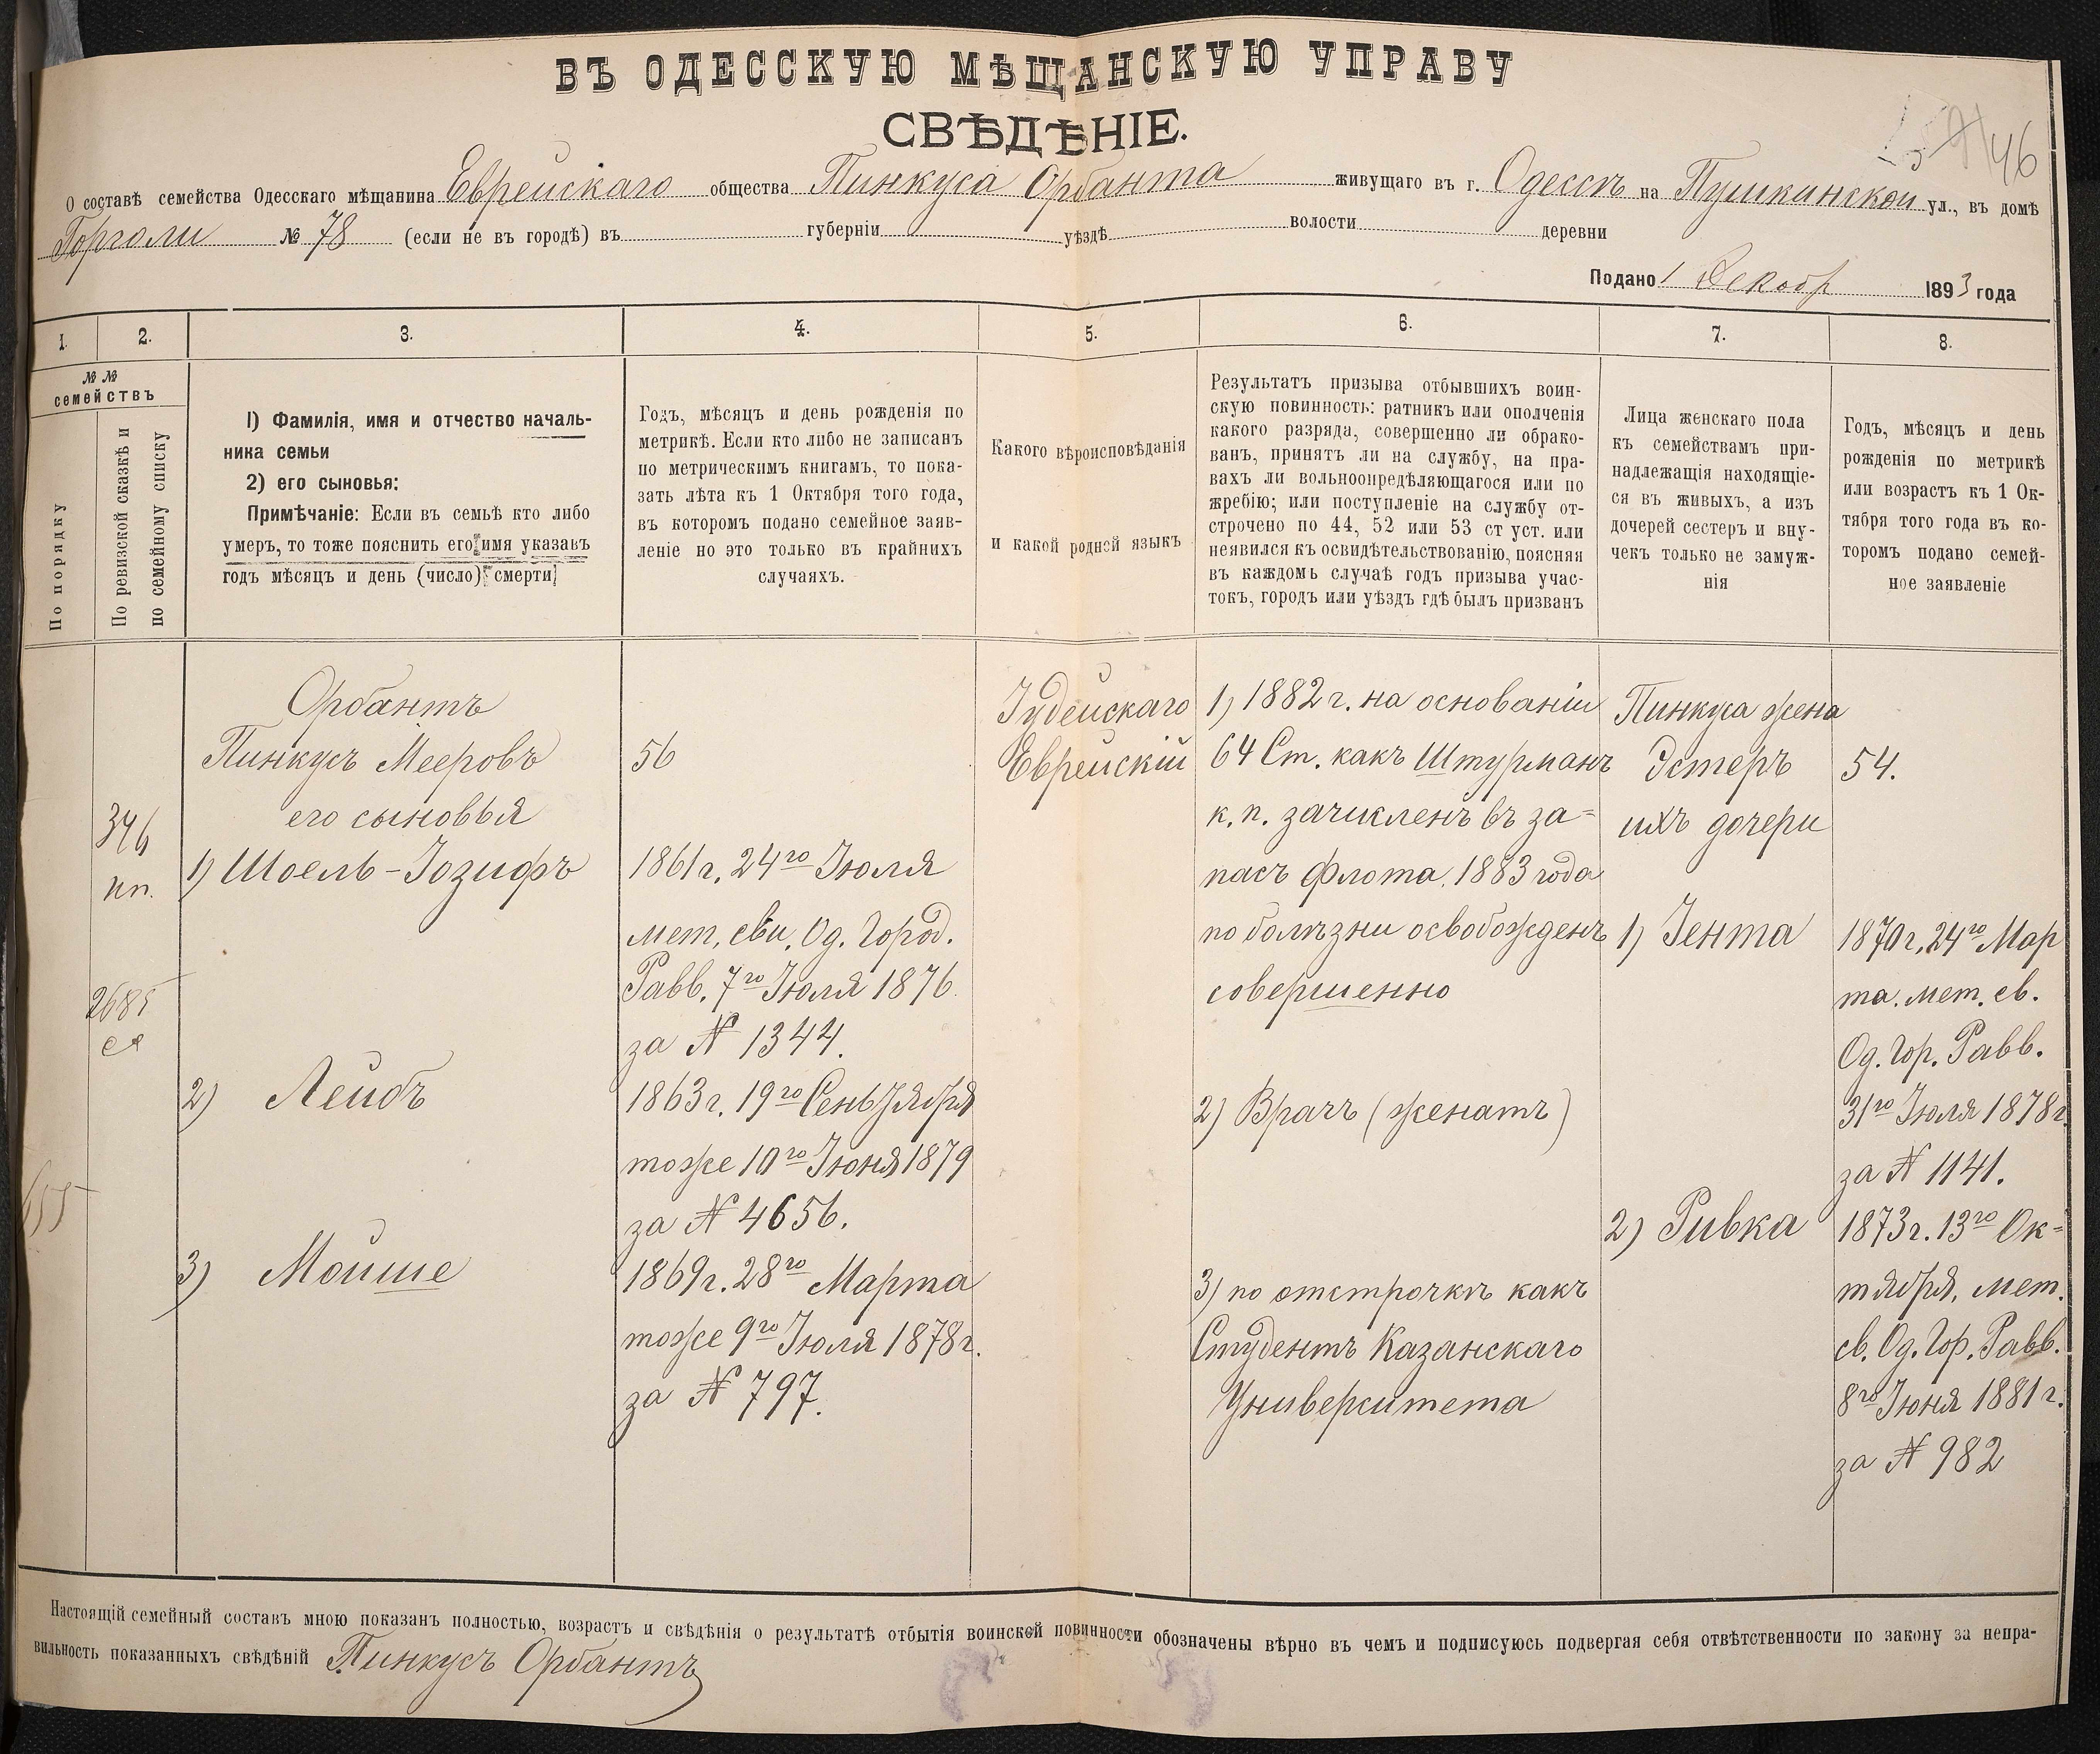 ВЪ ОДЕССКУЮ МѢЩАНСКУЮ УПРАВУ
СВѢДѢНІЕ.
46
О составѣ семейства Одесскаго мѣщанина Еврейскаго общества Пинкуса Орбанта живущаго въ г. Одессѣ на Пушкинской ул., въ домѣ
Горголи № 78 (если не въ городѣ) въ губерніи уѣздѣ волости деревни
Подано 1 Декабр 1893 года
1. 2. 3. 4. 5. 6. 7. 8.
№ №
семействъ
По порядку
По ревизской сказкѣ и
по семейному списку
1) Фамилія, имя и отчество началь-
ника семьи
2) его сыновья:
Примѣчаніе: Если въ семьѣ кто либо
умеръ, то тоже пояснить его имя указавъ
годъ мѣсяцъ и день (число) смерти
Годъ, мѣсяцъ и день рожденія по
метрикѣ. Если кто либо не записанъ
по метрическимъ книгамъ, то пока-
зать лѣта къ 1 Октября того года,
въ которомъ подано семейное заяв-
леніе но это только въ крайнихъ
случаяхъ.
Какого вѣроисповѣданія
и какой родной языкъ
Результатъ призыва отбывшихъ воин-
скую повинность: ратникъ или ополченія
какого разряда, совершенно ли обрако-
ванъ, принятъ ли на службу, на пра-
вахъ ли вольноопредѣляющагося или по
жребію; или поступленіе на службу от-
строчено по 44, 52 или 53 ст уст. или
неявился къ освидѣтельствованію, поясняя
въ каждомъ случаѣ годъ призыва учас-
токъ, городъ или уѣздъ гдѣ былъ призванъ
Лица женскаго пола
къ семействамъ при-
надлежащія находящіе-
ся въ живыхъ, а изъ
дочерей сестеръ и вну-
чекъ только не замуж-
нія
Годъ, мѣсяцъ и день
рожденія по метрикѣ
или возрастъ къ 1 Ок-
тября того года въ ко-
торомъ подано семей-
ное заявленіе
346
кп.
2685
ся
Орбантъ
Пинкусъ Мееровъ
его сыновья
1) Шоель-Іозифъ
2) Лейбъ
3) Мойше
56
1861 г. 24го Іюля
мет. сви. Од. Город.
Равв. 7го Іюля 1876
за № 1344.
1863 г. 19го Сентября
тоже 10го Іюня 1879
за № 4656.
1869 г. 28го Марта
тоже 9го Іюля 1878 г.
за № 797.
Іудейскаго
Еврейскій
1) 1882 г. на основаніи
64 Ст. какъ Штурманъ
к. п. зачисленъ въ за=
пасъ флота. 1883 года
по болѣзни освобожденъ
совершенно
2) Врачъ (женатъ)
3) по отстрочкѣ какъ
Студентъ Казанскаго
Университета
Пинкуса жена
Эстеръ
ихъ дочери
1) Іента
2) Ривка
54.
1870 г. 24го Мар
та. мет. св.
Од. Гор. Равв.
31го Іюля 1878 г.
за № 1141.
1873 г. 13го Ок=
тября, мет.
св. Од. Гор. Равв.
8го Іюня 1881 г.
за № 982
Настоящій семейный составъ мною показанъ полностью, возрастъ и свѣдѣнія о результатѣ отбытія воинской повинности обозначены вѣрно въ чемъ и подписуюсь подвергая себя отвѣтственности по закону за непра-
вильность показанныхъ свѣдѣній Пинкусъ Орбантъ